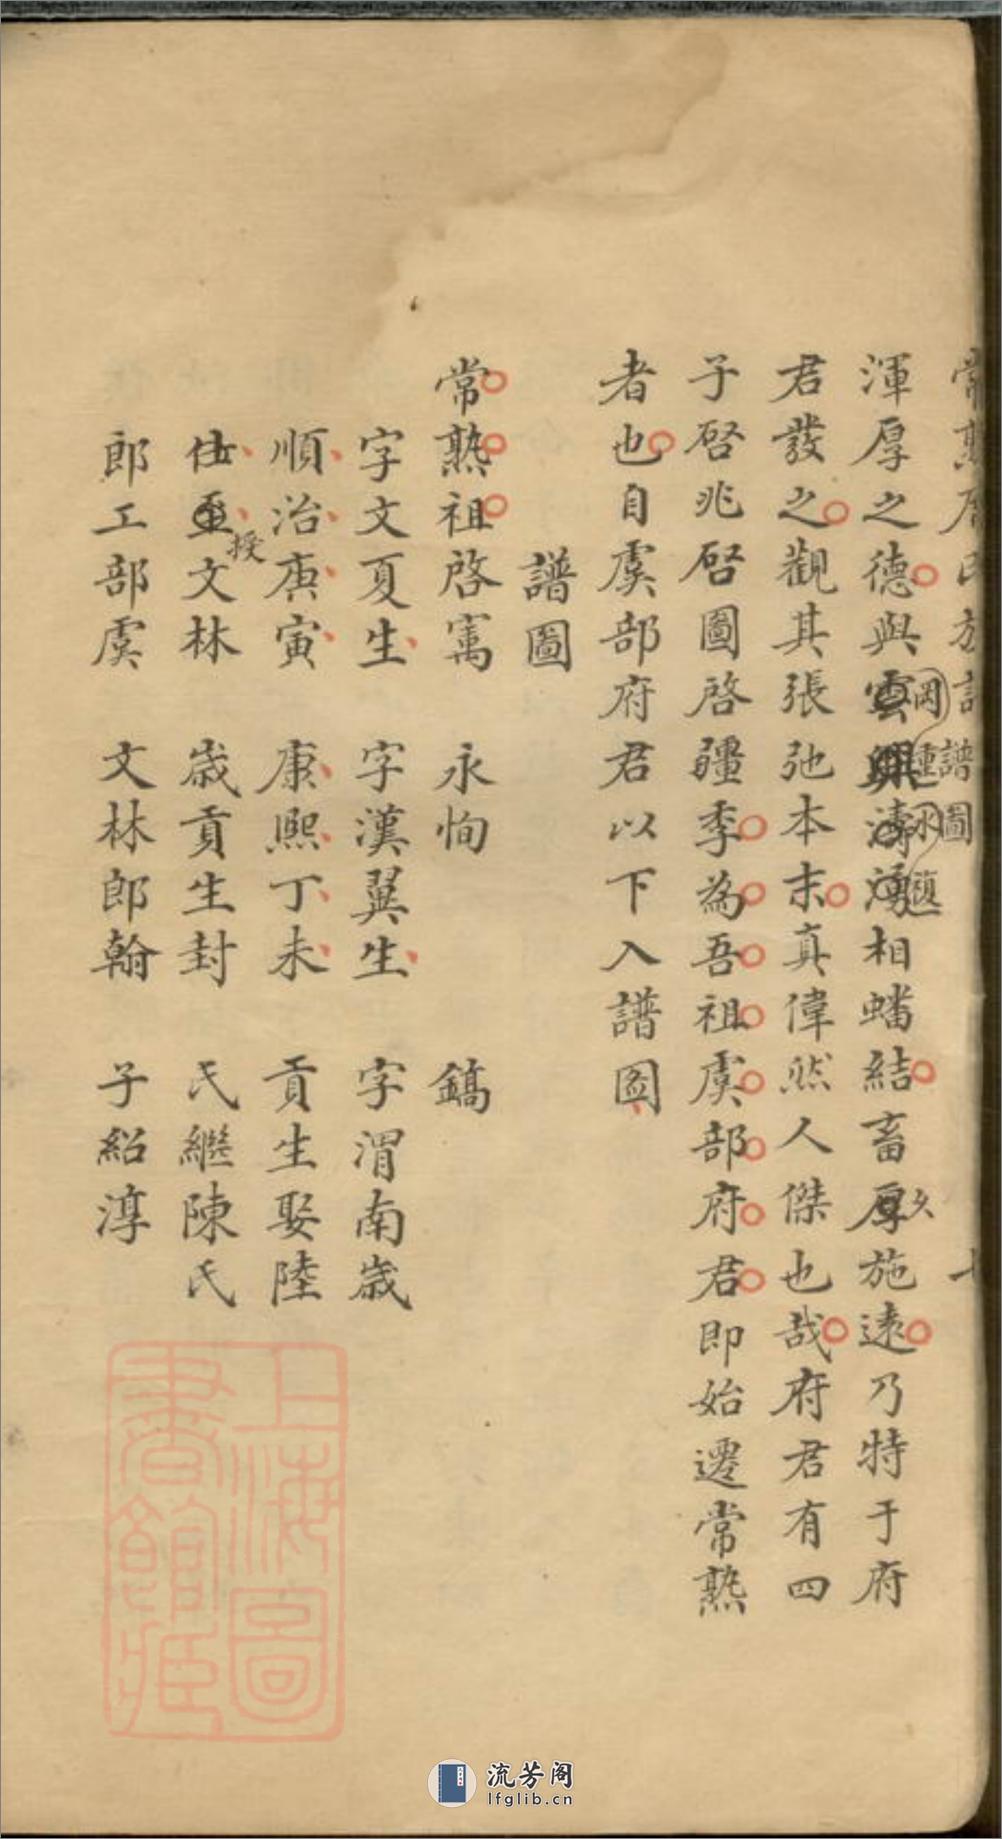 譜圖
渾厚之德與雲興濤湧相蟠結畜厚施遠乃特于府
岡重永蘊
久
君發之觀其張弛本末真偉然人傑也哉府君有四
子啓兆啓圖啓疆季為吾祖虞部府君即始遷常熟
者也自虞部府君以下入譜圖
譜圖
常熟祖啓寯 永恂 鎬
字文夏生 字漢翼生 字渭南歲
順治庚寅 康熙丁未 貢生娶陸
仕至文林 歲貢生封 氏繼陳氏
授
郎工部虞 文林郎翰 子紹淳
上海圖
書館藏
流芳阁
lfglib.cn